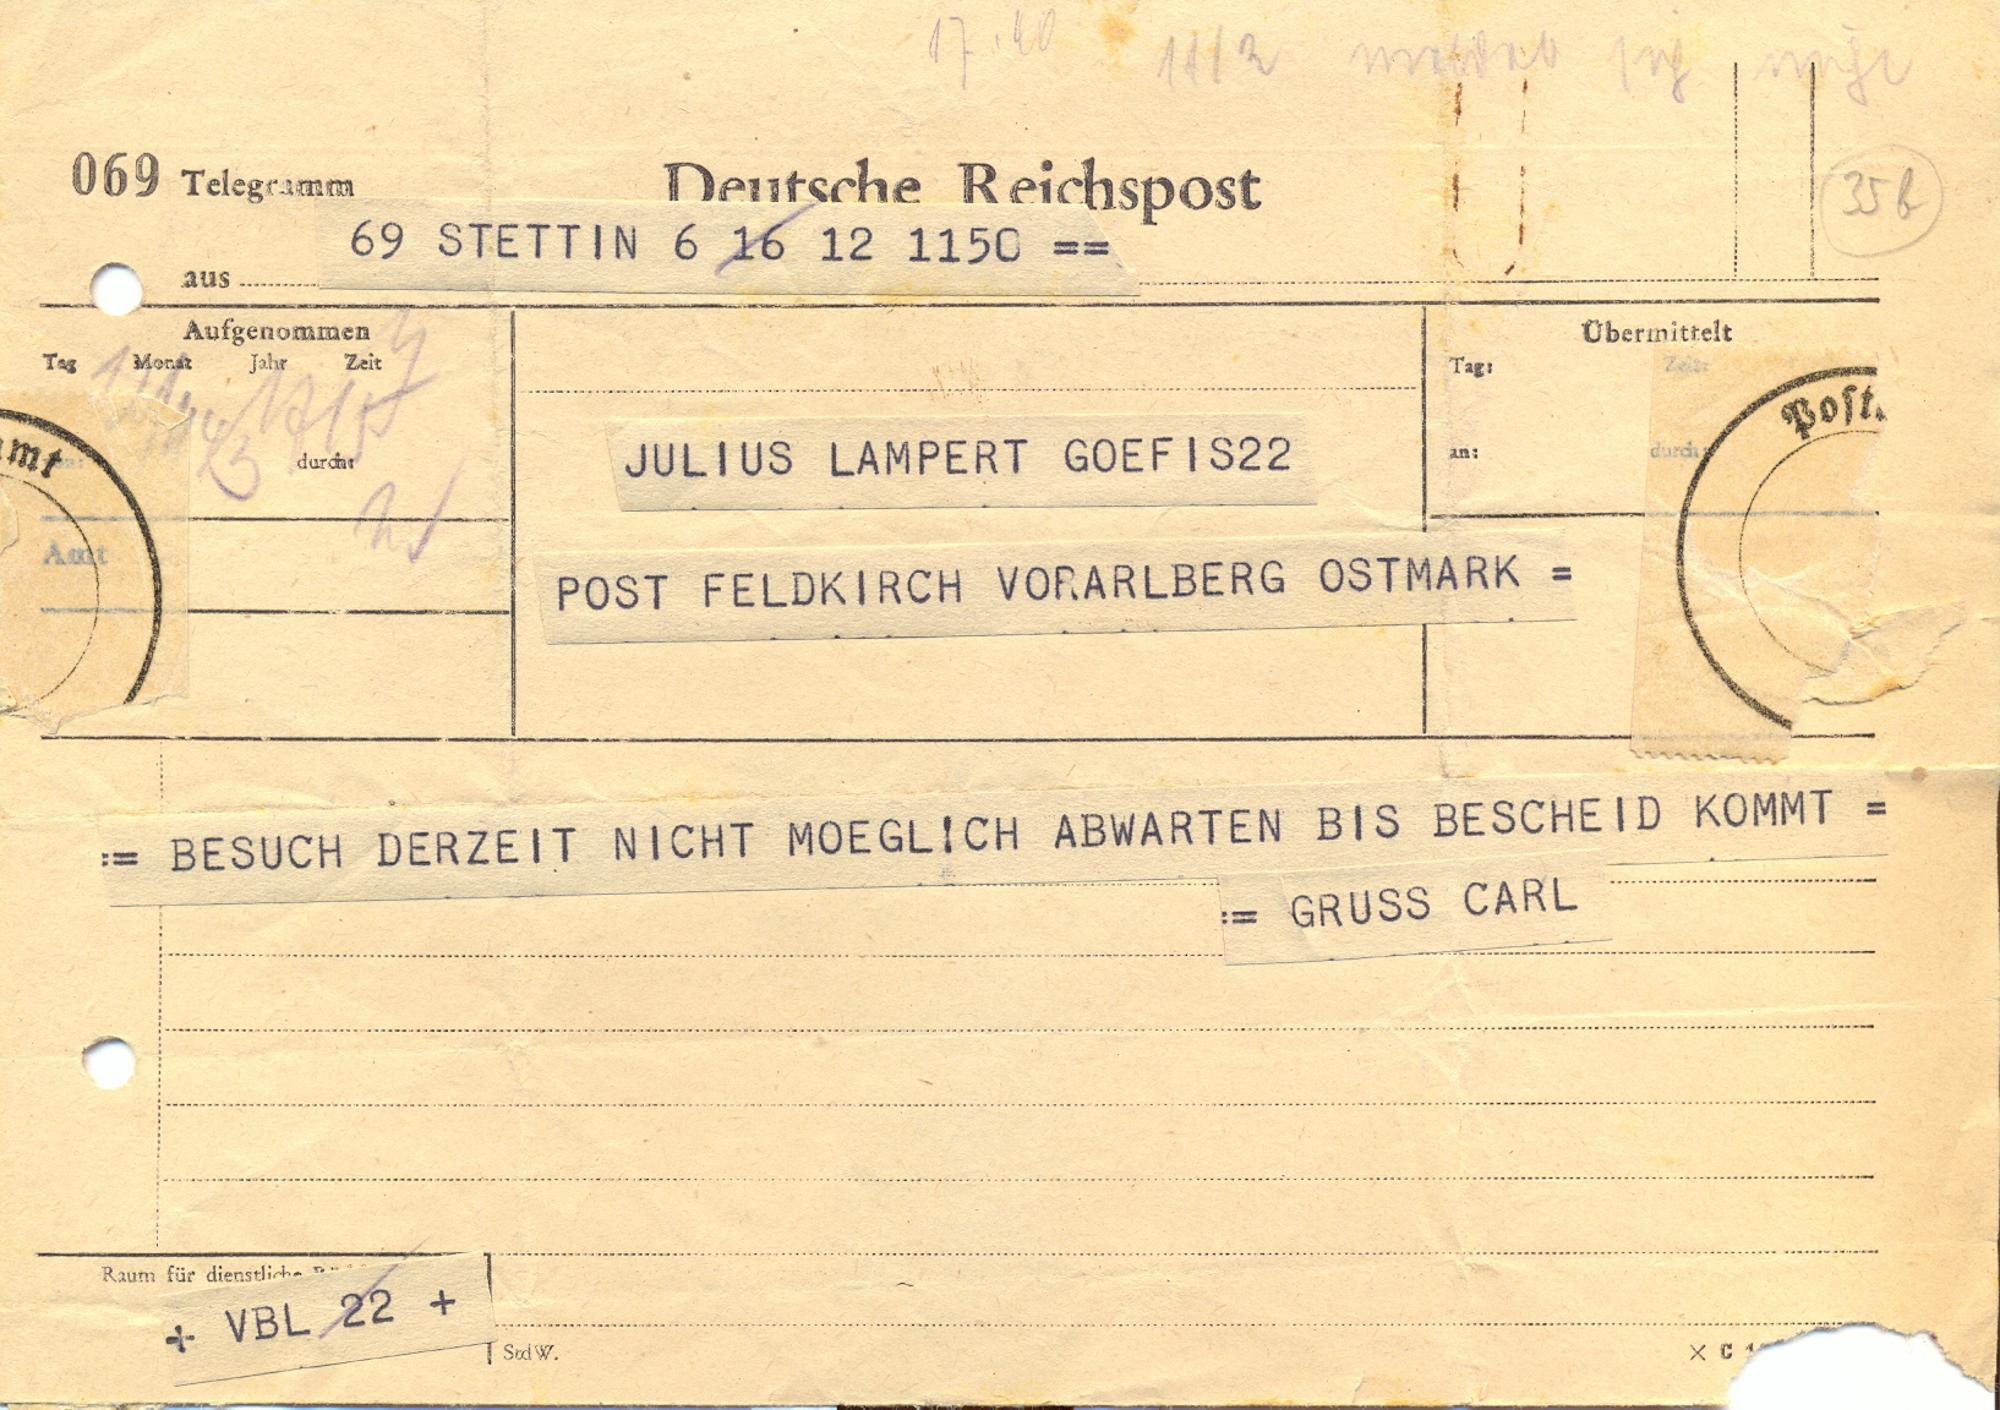 17.40
069 Telegramm Deutsche Reichspost
69 STETTIN 6 16 12 1150 ==
aus
35 b
Aufgenommen
Tag Monat Jahr Zeit
durch:
Amt
Übermittelt
Tag: Zeit:
an: durch:
amt
Post.
JULIUS LAMPERT GOEFIS22
POST FELDKIRCH VORARLBERG OSTMARK =
:= BESUCH DERZEIT NICHT MOEGL!CH ABWARTEN BIS BESCHEID KOMMT =
:= GRUSS CARL
Raum für dienstliche
+ VBL 22 +
StdW.
× C